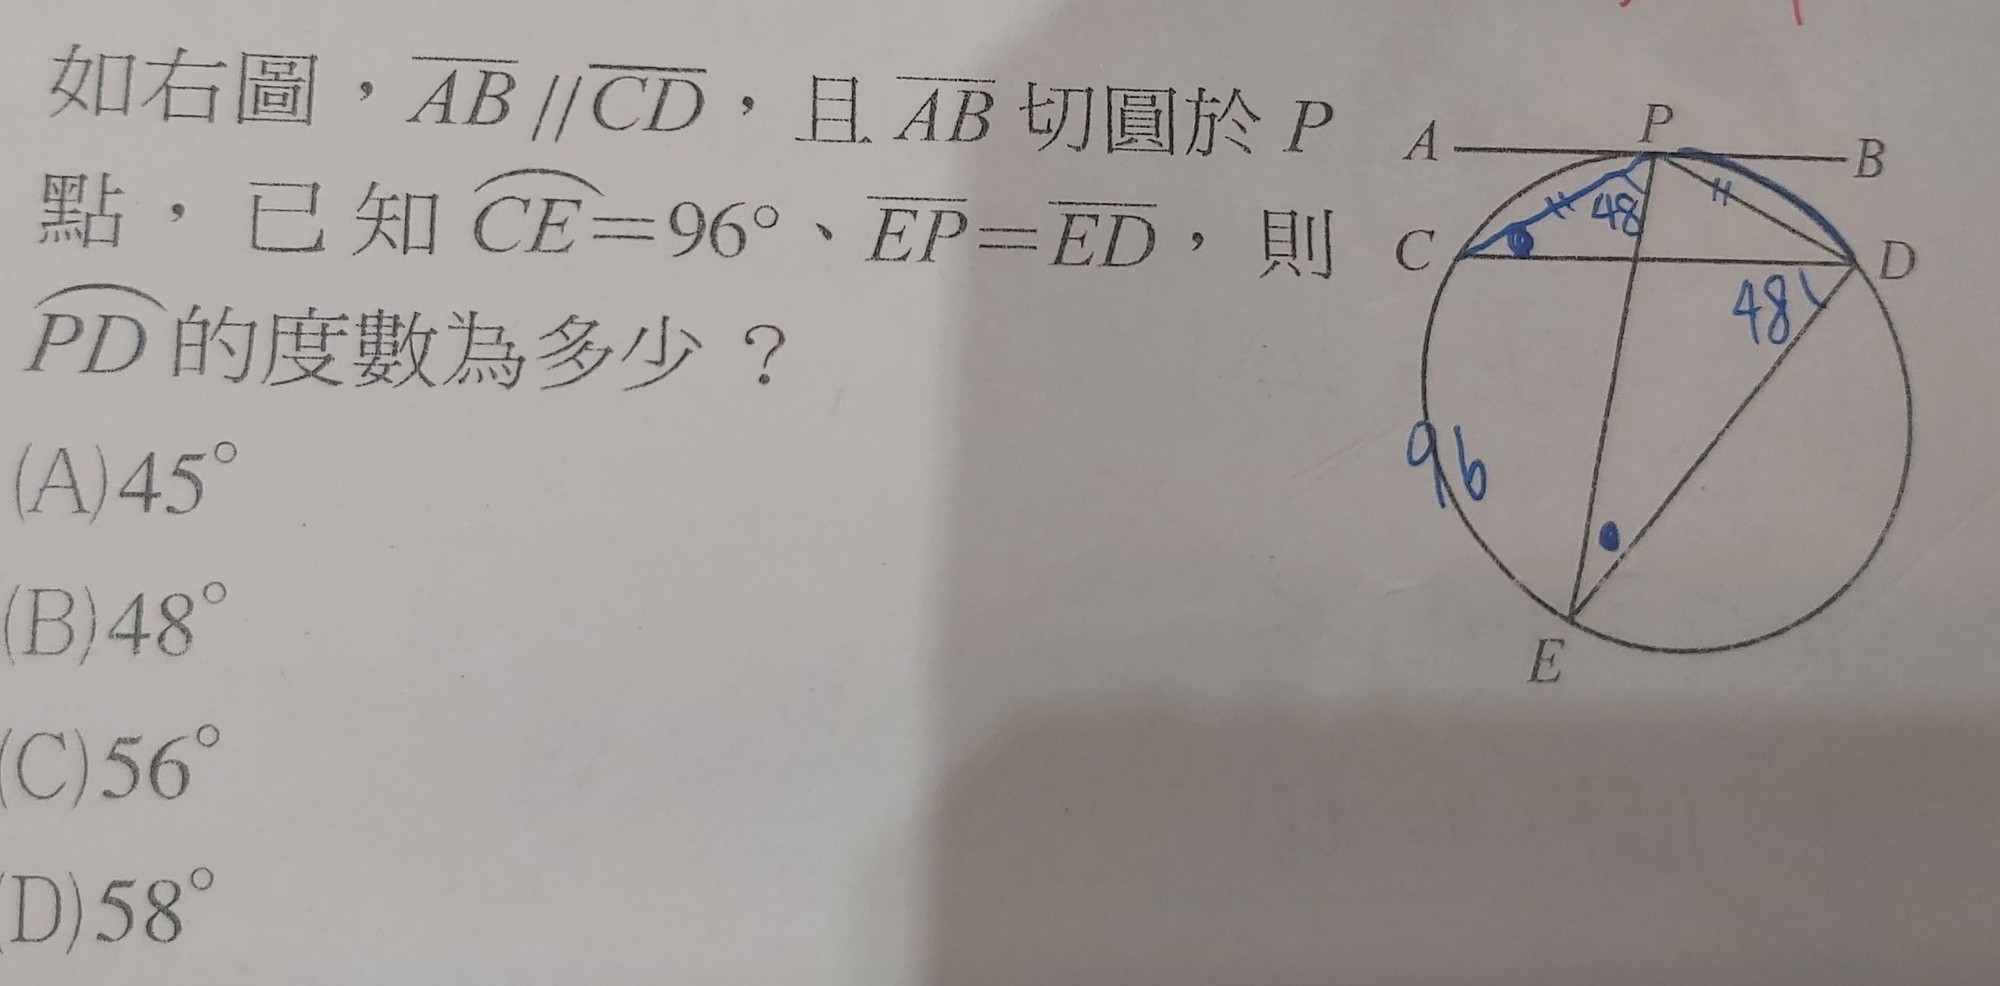 如右圖，AB//CD，且AB切圓於P
點，已知CE=96°、EP=ED，則
PD的度數為多少？
(A)45°
(B)48°
(C)56°
(D)58°
A P B
48
C D
48
96
E